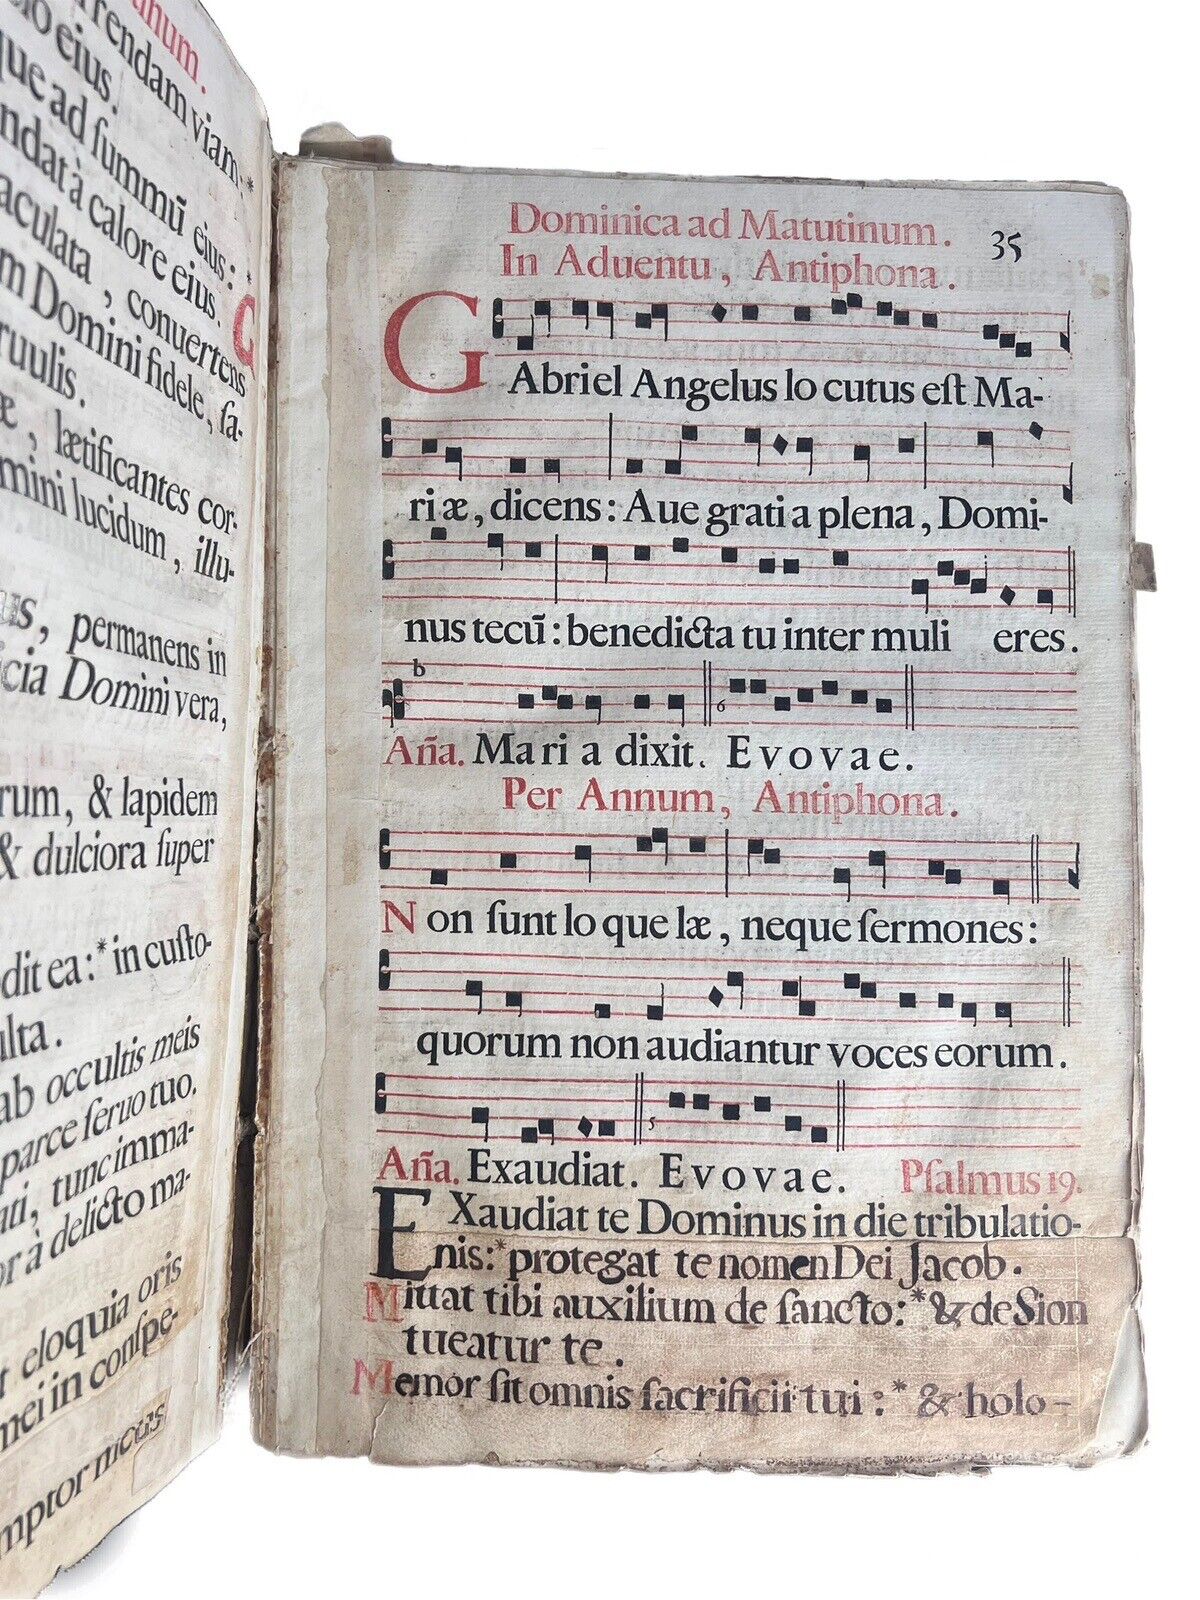 rrendam viam:*
eius.
que ad ſummũ eius:*
ndat à calore eius. G
aculata, conuertens
m Domini fidele, ſa-
ruulis.
æ, lætificantes cor-
mini lucidum, illu-
us, permanens in
icia Domini vera,
rum, & lapidem
& dulciora ſuper
dit ea:* in cuſto-
ulta.
ab occultis meis
parce ſeruo tuo.
ati, tunc imma-
or à delicto ma-
t eloquia oris
mei in conſpe-
mptor meus
Dominica ad Matutinum. 35
In Aduentu, Antiphona.
GAbriel Angelus lo cutus eſt Ma-
ri æ, dicens: Aue grati a plena, Domi-
nus tecũ: benedicta tu inter muli eres.
b
6
Aña. Mari a dixit. Evovae.
Per Annum, Antiphona.
Non ſunt lo que læ, neque ſermones:
quorum non audiantur voces eorum.
5
Aña. Exaudiat. Evovae. Pſalmus 19.
EXaudiat te Dominus in die tribulatio-
nis:* protegat te nomen Dei Jacob.
Mittat tibi auxilium de ſancto:* & de Sion
tueatur te.
Memor ſit omnis ſacrificii tui:* & holo-